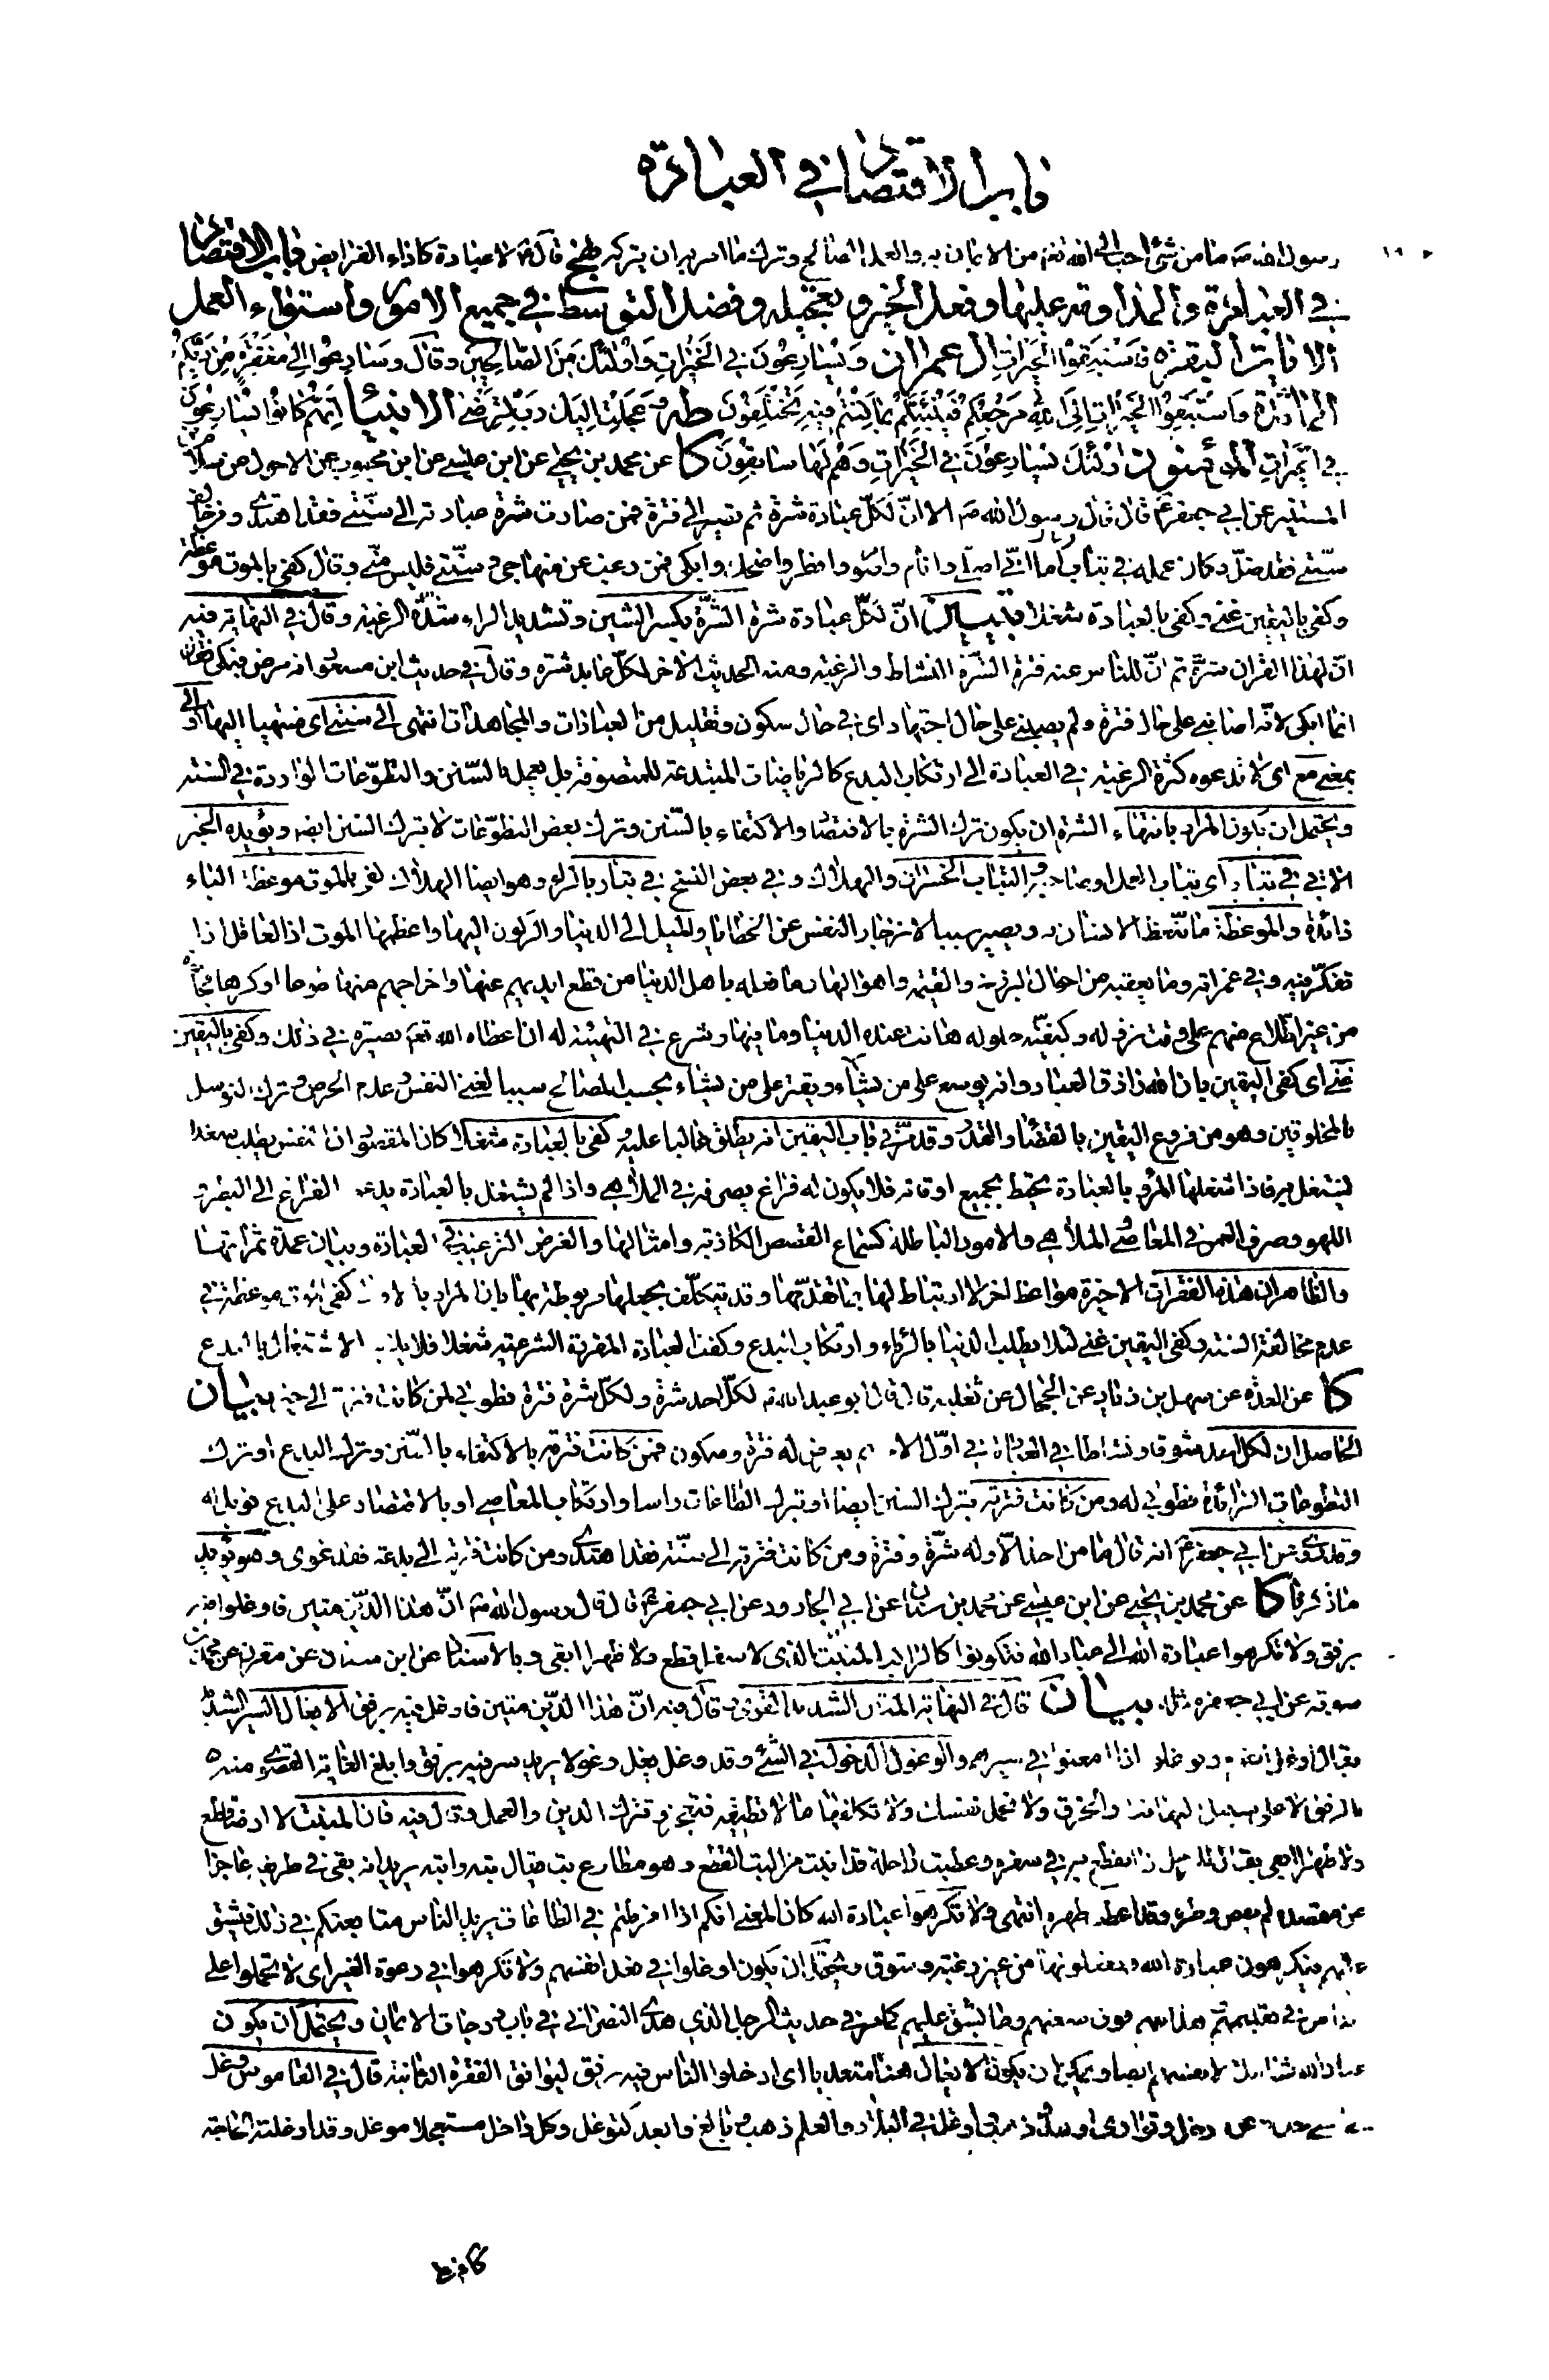 باب الاقتصاد في العبادة
رسول الله ص ما من شئ احب الى الله تعم من الايمان به والعمل الصالح وترك ما امر به ان يتركه نهج قال ع لا عبادة كاداء الفرايض باب الاقتصاد
في العبادة والمداومة عليها وفعل الخير وتعجيله وفضل التوسط في جميع الامور واستواء العمل
الايات البقرة فاستبقوا الخيرات ال عمران ويسارعون في الخيرات واولئك من الصالحين وقال وسارعوا الى مغفرة من ربكم
المائدة فاستبقوا الخيرات الى الله مرجعكم فينبئكم بما كنتم فيه تختلفون طه وعجلت اليك رب لترضى الانبيا انهم كانوا يسارعون
في الخيرات المؤمنون اولئك يسارعون في الخيرات وهم لها سابقون كا عن محمد بن يحيى عن ابن عيسى عن ابن محبوب عن الاحول عن سلام
المستنير عن ابي جعفر ع قال قال رسول الله ص الا ان لكل عبادة شرة ثم تصير الى فترة فمن صارت شرة عبادته الى سنتي فقد اهتدى ومن خالف
سنتي فقد ضل وكان عمله في تباب اما اني اصلي وانام واصوم وافطر واضحك وابكي فمن رغب عن منهاجي وسنتي فليس مني وقال كفى بالموت موعظة
وكفى باليقين غنى وكفى بالعبادة شغلا بيان ان لكل عبادة شرة الشرة بكسر الشين وتشديد الراء شدة الرغبة وقال في النهاية فيه
ان لهذا القران شرة ثم ان للناس عنه فترة الشرة النشاط والرغبة ومنه الحديث الاخر لكل عابد شرة وقال في حديث ابن مسعود انه مرض فبكى فقال
انما ابكي لانه اصابني على حال فترة ولم يصبني على حال اجتهاد اى في حال سكون وتقليل من العبادات والمجاهدات انتهى الى سنتي اى منتهيا اليها او الى
بمعنى مع اى لا تدعوه كثرة الرغبة في العبادة الى ارتكاب البدع كالرياضات المبتدعة للمتصوفة بل يعمل بالسنن والتطوعات الواردة في السنة
ويحتمل ان يكون المراد بانتهاء الشرة ان يكون ترك الشرة بالاقتصاد والاكتفاء بالسنن وترك بعض التطوعات لا بترك السنن ايضا ويؤيده الخبر
الاتي في تباب اى تباب العمل او صاحبه والتباب الخسران والهلاك وفي بعض النسخ في تبار بالراء وهو ايضا الهلاك كفى بالموت موعظة الباء
زائدة والموعظة ما يتعظ الانسان به ويصير سببا لانزجار النفس عن الخطايا والميل الى الدنيا والركون اليها واعظمها الموت اذ العاقل اذا
تفكر فيه وفي غمراته وما يعقبه من احوال البرزخ والقيمة واهوالها وما فعله باهل الدنيا من قطع ايديهم عنها واخراجهم منها طوعا او كرها فجأة
من غير اطلاع منهم على وقت نزوله وكيفية حلوله هانت عنده الدنيا وما فيها وشرع في التهيئة له ان اعطاه الله تعم بصيرة في ذلك وكفى باليقين
غنى اى كفى اليقين بان الله رازق العباد وانه يوسع على من يشاء ويقتر على من يشاء بحسب المصالح سببا لغنى النفس وعدم الحرص وترك التوسل
بالمخلوقين وهو من فروع اليقين بالقضاء والقدر وقد مر في باب اليقين انه يطلق غالبا عليه وكفى بالعبادة شغلا كان المقصود ان النفس يطلب شغلا
ليشتغل به فاذا شغلها المرء بالعبادة تحيط بجميع اوقاته فلا يكون له فراغ يصرفه في الملاهي واذا لم يشتغل بالعبادة يدعوه الفراغ الى البطر و
اللهو وصرف العمر في المعاصي والملاهي والامور الباطلة كسماع القصص الكاذبة وامثالها والغرض الترغيب في العبادة وبيان عمدة ثمراتها
والظاهر ان هذه الفقرات الاخيرة مواعظ اخر لا ارتباط لها بما تقدمها وقد يتكلف بجعلها مربوطة بها بان المراد بالاول كفى الموت موعظة في
عدم مخالفة السنة وكفى اليقين غنى لئلا يطلب الدنيا بالرياء وارتكاب البدع وكفت العبادة المقررة الشرعية شغلا فلا يلزم الاشتغال بالبدع
كا عن العدة عن سهل بن زياد عن الحجال عن ثعلبة قال قال ابو عبد الله ع لكل احد شرة ولكل شرة فترة فطوبى لمن كانت فترته الى خير بيان
الحاصل ان لكل احد شوقا ونشاطا في العبادة في اول الامر ثم يعرض له فترة وسكون فمن كانت فترته بالاكتفاء بالسنن وترك البدع او ترك
التطوعات الزائدة فطوبى له ومن كانت فترته بترك السنن ايضا او بترك الطاعات راسا وارتكاب المعاصي او بالاقتصاد على البدع فويل له
وقد روى عن ابي جعفر ع انه قال ما من احد الا وله شرة وفترة ومن كانت فترته الى سنة فقد اهتدى ومن كانت فترته الى بدعة فقد غوى وهو يؤيد
ما ذكرنا كا عن محمد بن يحيى عن ابن عيسى عن محمد بن سنان عن ابي الجارود عن ابي جعفر ع قال قال رسول الله ص ان هذا الدين متين فاوغلوا فيه
برفق ولا تكرهوا عبادة الله الى عباد الله فتكونوا كالراكب المنبت الذي لا سفرا قطع ولا ظهرا ابقى وبالاسناد عن ابن سنان عن مقرن عن محمد بن
سوقة عن ابي جعفر ع مثله بيان قال في النهاية المتين الشديد القوى وقال فيه ان هذا الدين متين فاوغل فيه برفق الايغال السير الشديد
يقال اوغل القوم وتوغلوا اذا امعنوا في سيرهم والوغول الدخول في الشئ وقد وغل يغل وغولا يريد سر فيه برفق وابلغ الغاية القصوى منه
بالرفق لا على سبيل التهافت والخرق ولا تحمل نفسك ولا تكلفها ما لا تطيقه فتعجز وتترك الدين والعمل وقال فيه فان المنبت لا ارضا قطع
ولا ظهرا ابقى يقال للرجل اذا انقطع به في سفره وعطبت راحلته قد انبت من البت القطع وهو مطاوع بت يقال بته وابته يريد انه بقي في طريقه عاجزا
عن مقصده لم يقض وطره وقد اعطب ظهره انتهى ولا تكرهوا عبادة الله كان المعنى انكم اذا افرطتم في الطاعات يريد الناس متابعتكم في ذلك فيشق
عليهم فيكرهون عبادة الله ويفعلونها من غير رغبة وشوق ويحتمل ان يكون اوغلوا في فعل انفسهم ولا تكرهوا في دعوة الغير اى لا تحملوا على
الناس في تعليمهم وهدايتهم فوق سعتهم وما يشق عليهم كما مر في حديث الرجل الذي هدى النصراني في باب درجات الايمان ويحتمل ان يكون
عباد الله شاملا لانفسهم ايضا ويمكن ان يكون الايغال هنا متعديا اى ادخلوا الناس فيه برفق ليوافق الفقرة الثانية قال في القاموس وغل
في الشئ دخل وتوارى او بعد وذهب واوغل في البلاد والعلم ذهب وبالغ وابعد كتوغل وكل داخل مستعجلا موغل وقد اوغلته الحاجة